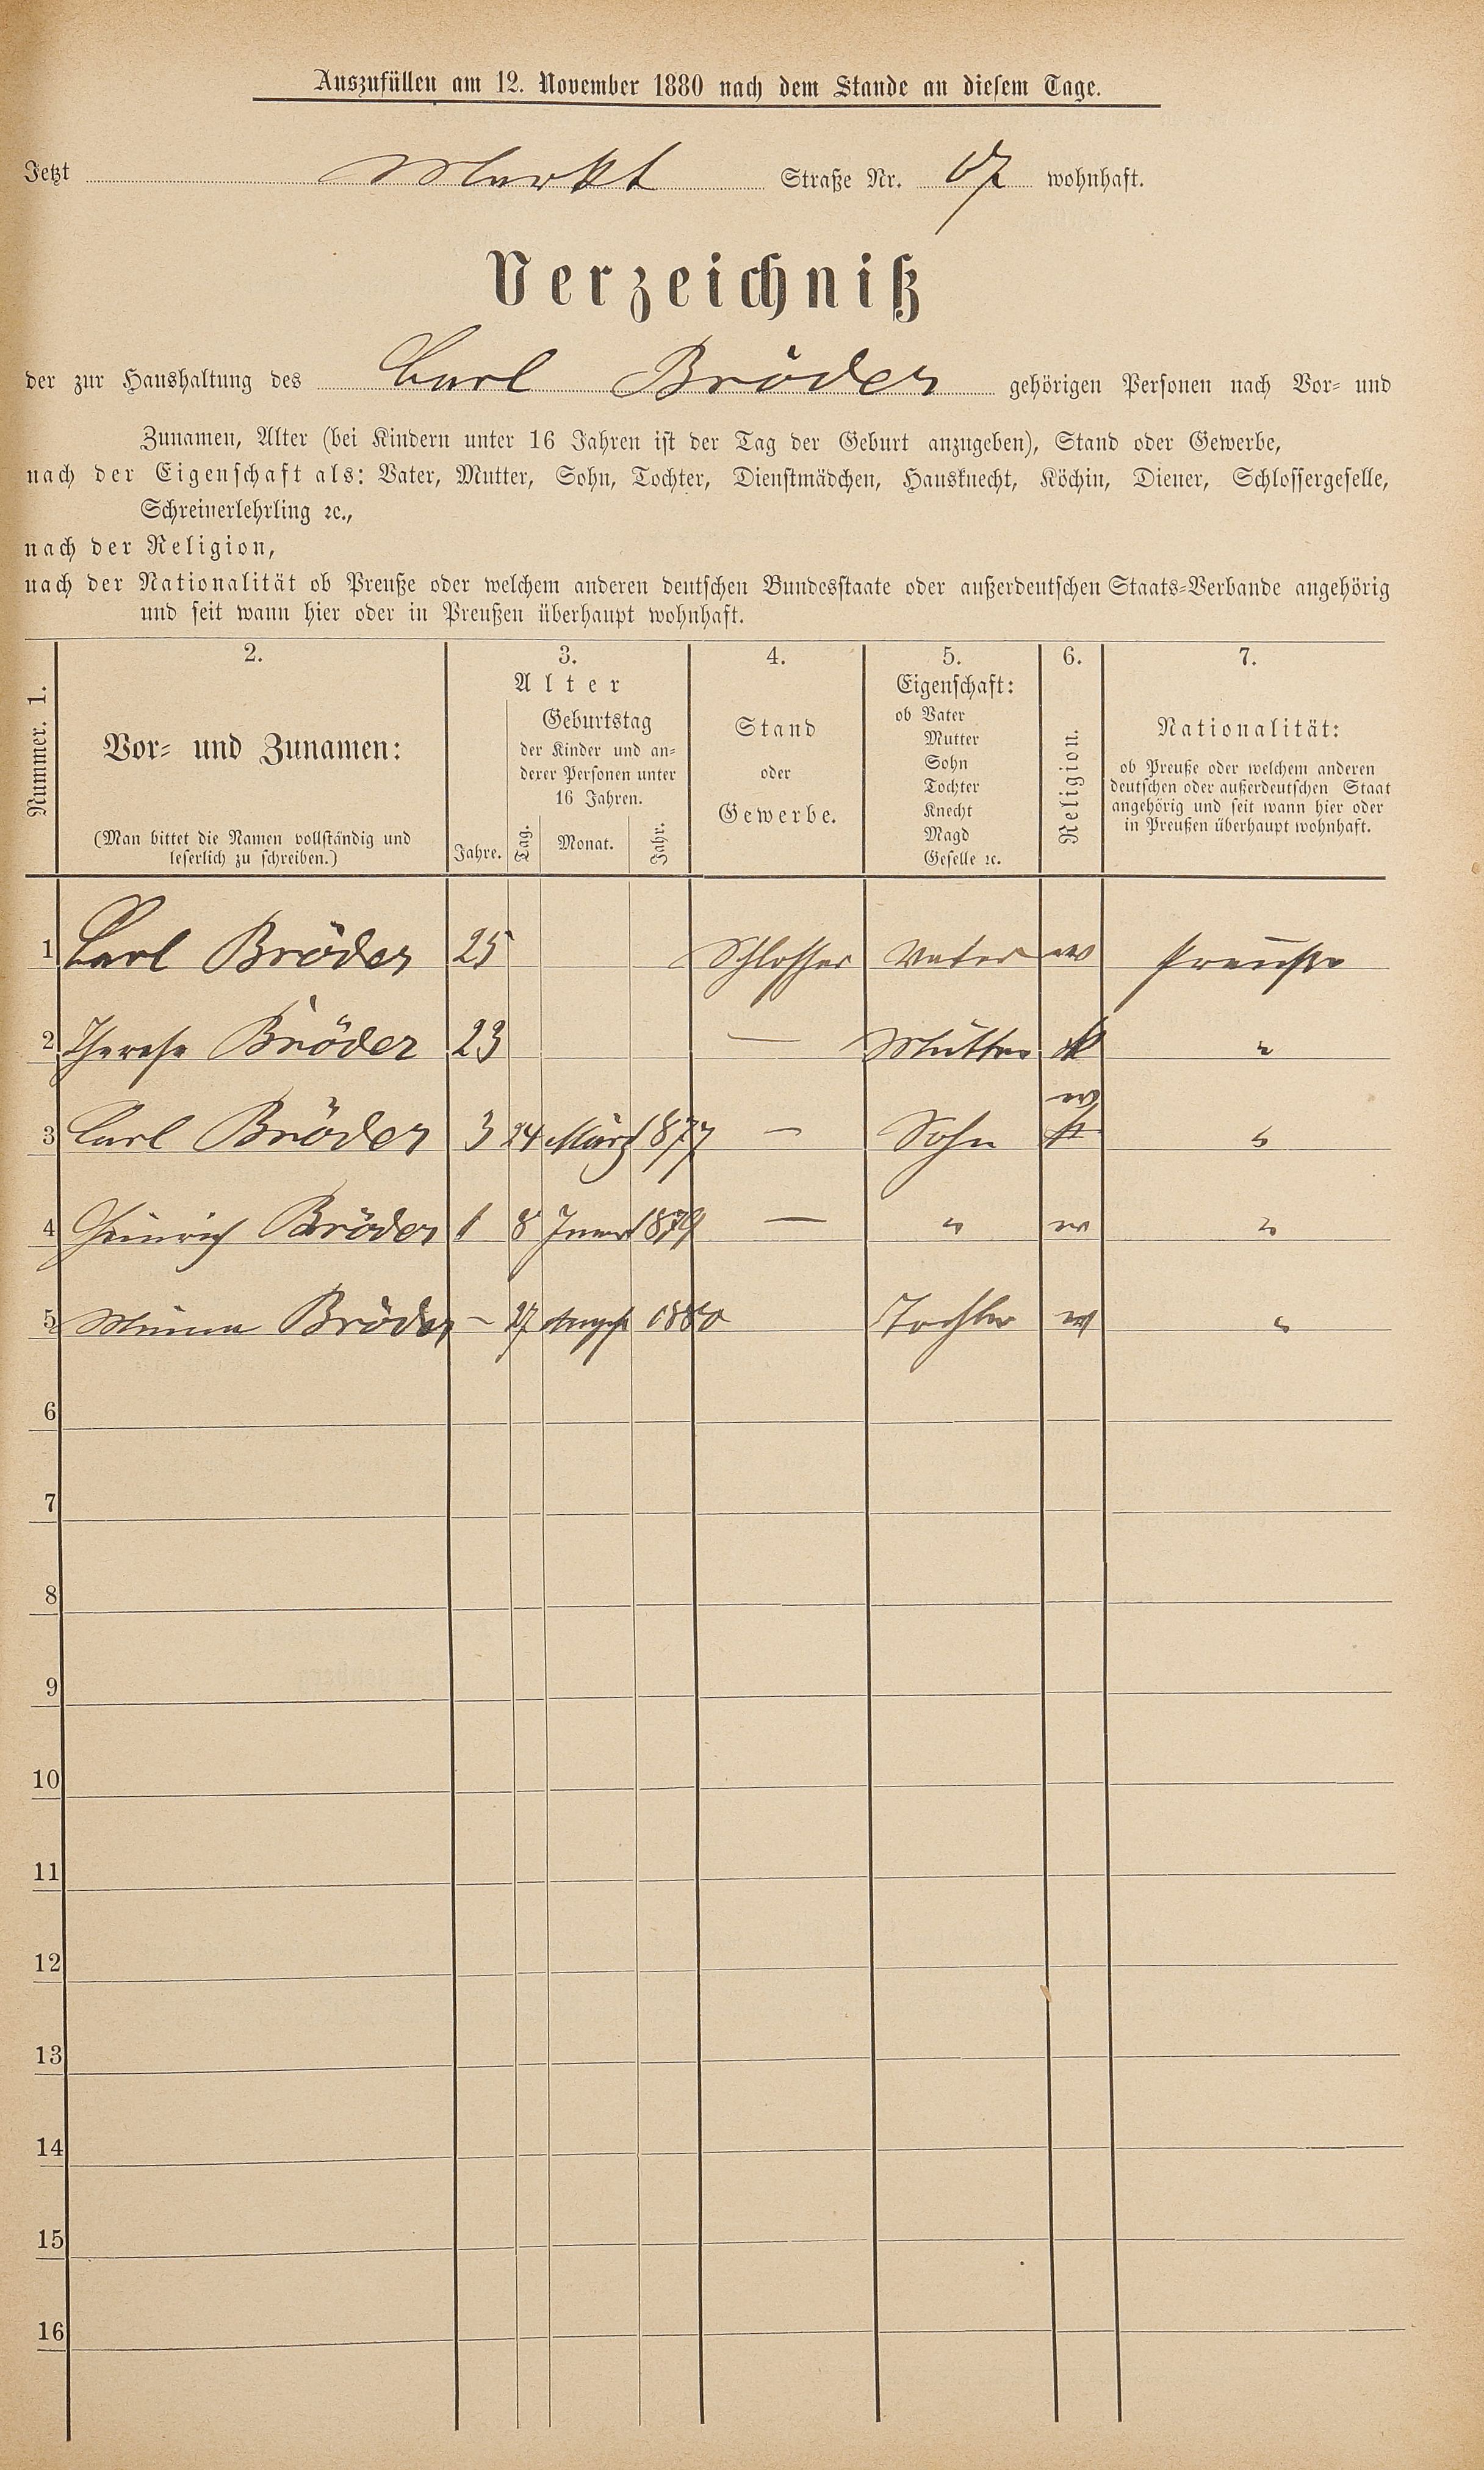 Auszufüllen am 12. November 1880 nach dem Stande an diesem Tage.
Jetzt Markt Straße Nr. 17 wohnhaft.
Verzeichniß
der zur Haushaltung des Carl Bröder gehörigen Personen nach Vor- und
Zunamen, Alter (bei Kindern unter 16 Jahren ist der Tag der Geburt anzugeben), Stand oder Gewerbe,
nach der Eigenschaft als: Vater, Mutter, Sohn, Tochter, Dienstmädchen, Hausknecht, Köchin, Diener, Schlossergeselle,
Schreinerlehrling ꝛc.,
nach der Religion,
nach der Nationalität ob Preuße oder welchem anderen deutschen Bundesstaate oder außerdeutschen Staats-Verbande angehörig
und seit wann hier oder in Preußen überhaupt wohnhaft.
Nummer. 1.
2.
Vor- und Zunamen:
(Man bittet die Namen vollständig und
leserlich zu schreiben.)
3.
Alter
Jahre.
Geburtstag
der Kinder und an-
derer Personen unter
16 Jahren.
Tag. Monat. Jahr.
4.
Stand
oder
Gewerbe.
5.
Eigenschaft:
ob Vater
Mutter
Sohn
Tochter
Knecht
Magd
Geselle ꝛc.
6.
Religion.
7.
Nationalität:
ob Preuße oder welchem anderen
deutschen oder außerdeutschen Staat
angehörig und seit wann hier oder
in Preußen überhaupt wohnhaft.
1 Carl Bröder 25 Schlosser Vater ev Preuße
2 Therese Bröder 23 — Mutter k "
ev
3 Carl Bröder 3 24 März 1877 — Sohn k "
4 Heinrich Bröder 1 8 Januar 1879 — " ev "
5 Minna Bröder – 27 August 1880 Tochter ev "
6
7
8
9
10
11
12
13
14
15
16